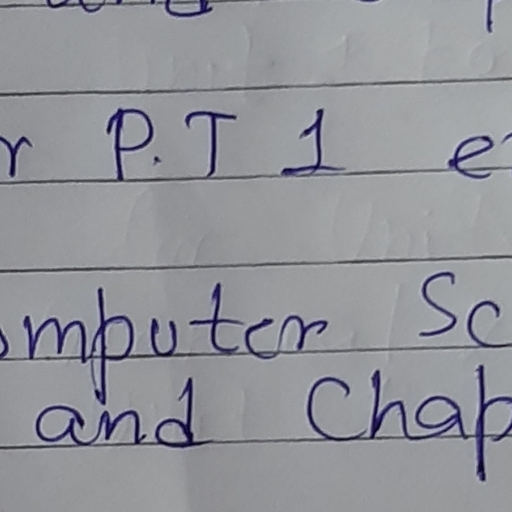 r P.T 1 e
omputer Sc
and Chap